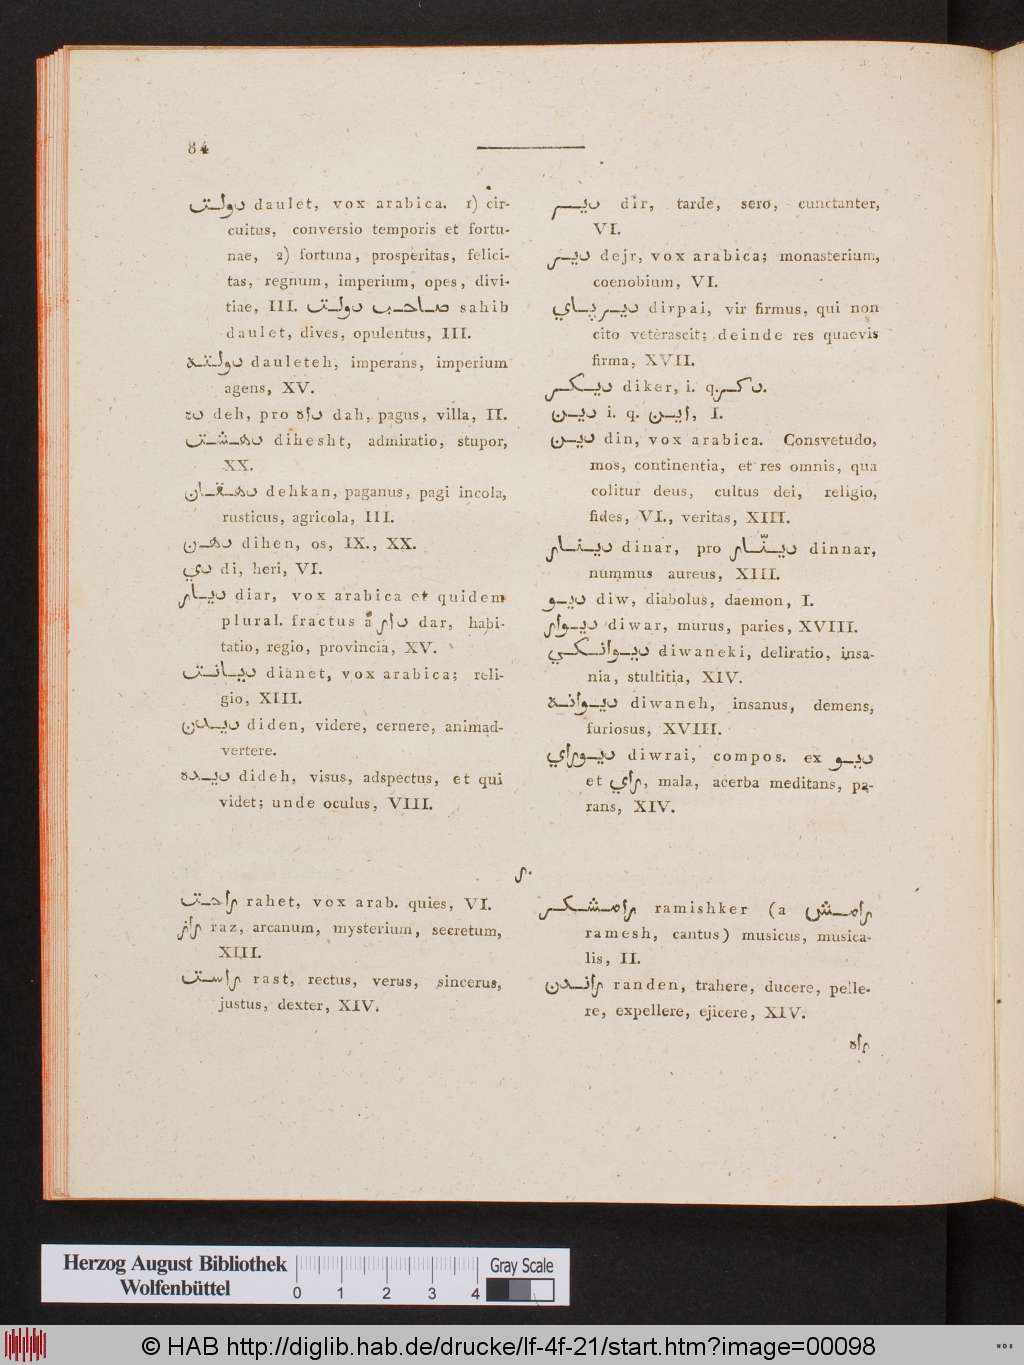 84
دولت daulet, vox arabica. 1) cir-
cuitus, conversio temporis et fortu-
nae, 2) fortuna, prosperitas, felici-
tas, regnum, imperium, opes, divi-
tiae, III. صاحب دولت sahib
daulet, dives, opulentus, III.
دولته dauleteh, imperans, imperium
agens, XV.
ده deh, pro داه dah, pagus, villa, II.
دهشت dihesht, admiratio, stupor,
XX.
دهقان dehkan, paganus, pagi incola,
rusticus, agricola, III.
دهن dihen, os, IX., XX.
دي di, heri, VI.
ديار diar, vox arabica et quidem
plural. fractus a دار dar, habi-
tatio, regio, provincia, XV.
ديانت dianet, vox arabica; reli-
gio, XIII.
ديدن diden, videre, cernere, animad-
vertere.
ديده dideh, visus, adspectus, et qui
videt; unde oculus, VIII.
دير dir, tarde, sero, cunctanter,
VI.
دير dejr, vox arabica; monasterium,
coenobium, VI.
ديرپاي dirpai, vir firmus, qui non
cito veterascit; deinde res quaevis
firma, XVII.
ديكر diker, i. q. دكر.
دين i. q. اين, I.
دين din, vox arabica. Consvetudo,
mos, continentia, et res omnis, qua
colitur deus, cultus dei, religio,
fides, VI., veritas, XIII.
دينار dinar, pro دينّار dinnar,
nummus aureus, XIII.
ديو diw, diabolus, daemon, I.
ديوار diwar, murus, paries, XVIII.
ديوانكي diwaneki, deliratio, insa-
nia, stultitia, XIV.
ديوانه diwaneh, insanus, demens,
furiosus, XVIII.
ديوراي diwrai, compos. ex ديو
et راي, mala, acerba meditans, pa-
rans, XIV.
ر.
راحت rahet, vox arab. quies, VI.
راز raz, arcanum, mysterium, secretum,
XIII.
راست rast, rectus, verus, sincerus,
justus, dexter, XIV.
رامشكر ramishker (a رامش
ramesh, cantus) musicus, musica-
lis, II.
راندن randen, trahere, ducere, pelle-
re, expellere, ejicere, XIV.
راه
Herzog August Bibliothek
Wolfenbüttel
0 1 2 3 4
Gray Scale
© HAB http://diglib.hab.de/drucke/lf-4f-21/start.htm?image=00098